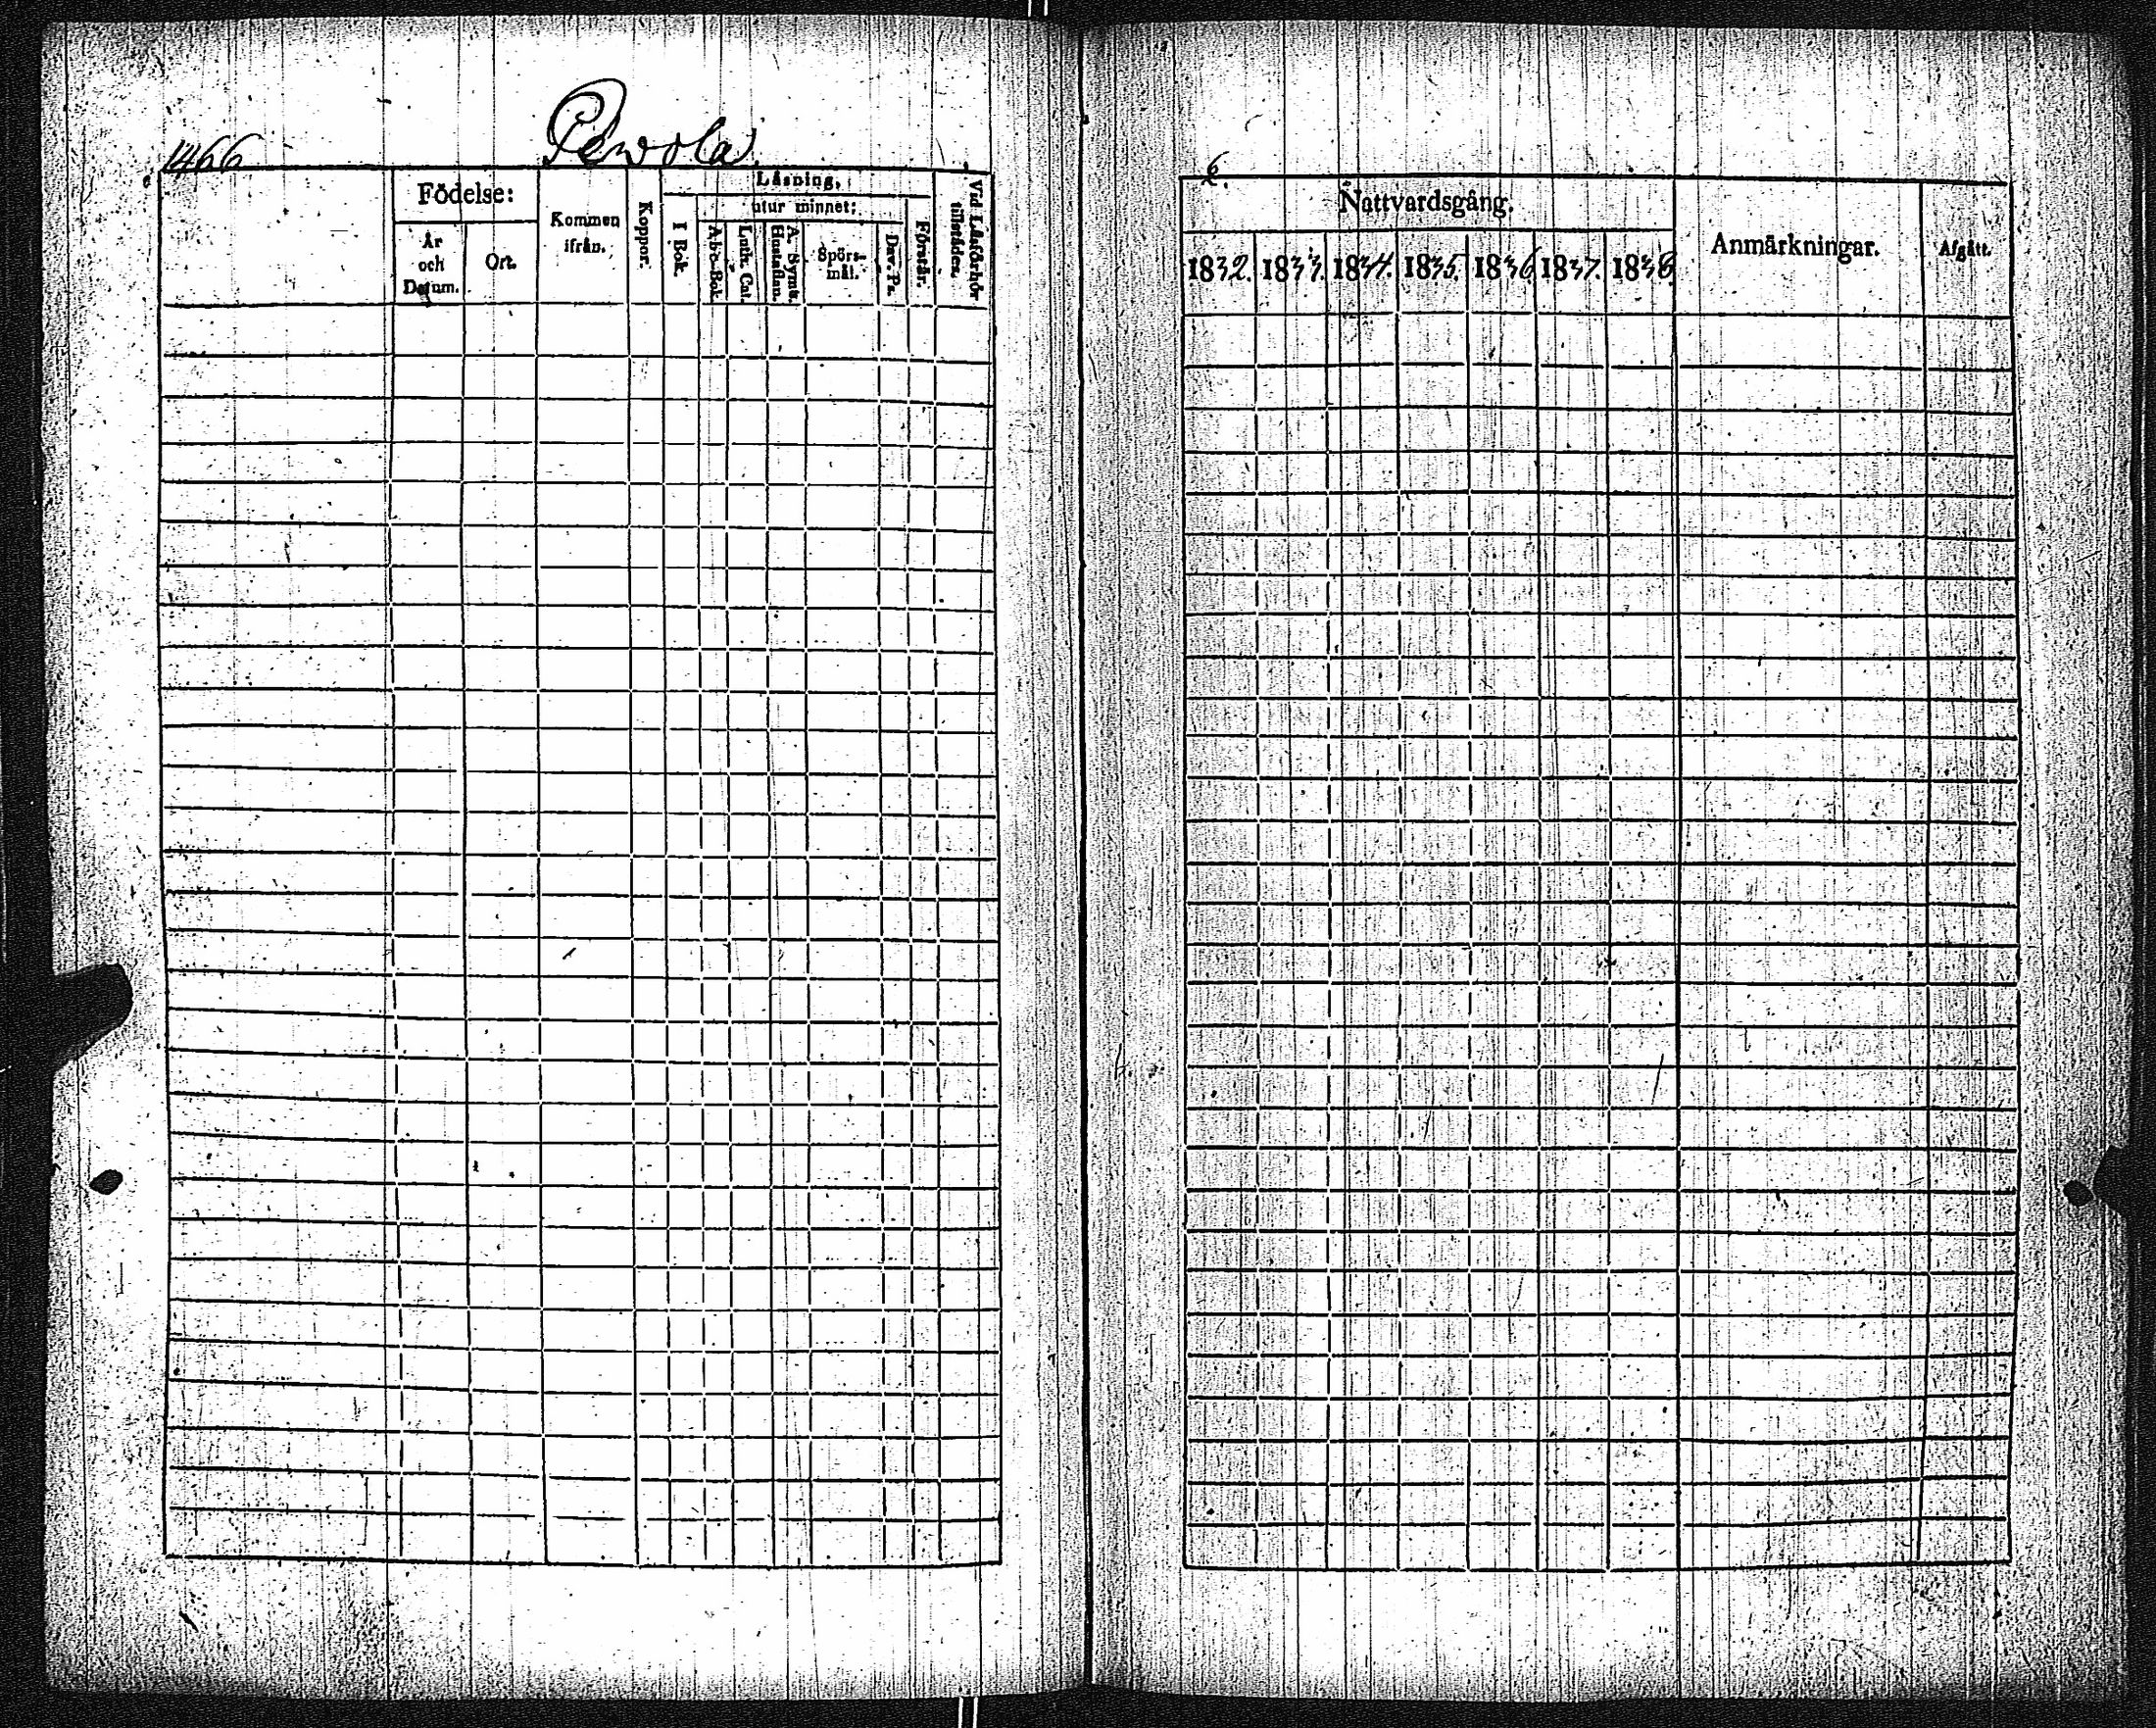 1466
Pewola
Födelse:
År och Datum.
Ort.
Kommen ifrån.
Koppor.
Läsning.
I Bok.
utur minnet:
A-b-c-Bok.
Luth. Cat.
A. Symb. Hustaflan.
Spörs-mål.
Dav. Ps.
Förstår.
Vid Läsförhör tillstädes.
Nattvardsgång.
1832. 1833. 1834. 1835. 1836. 1837. 1838.
Anmärkningar.
Afgått.